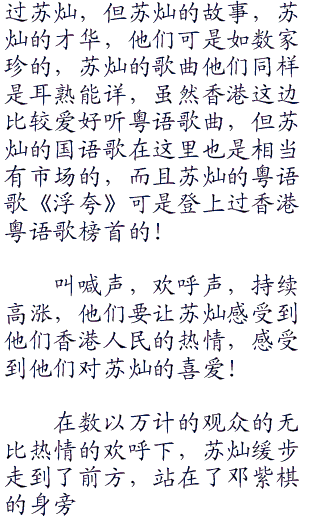 过苏灿，但苏灿的故事，苏
灿的才华，他们可是如数家
珍的，苏灿的歌曲他们同样
是耳熟能详，虽然香港这边
比较爱好听粤语歌曲，但苏
灿的国语歌在这里也是相当
有市场的，而且苏灿的粤语
歌《浮夸》可是登上过香港
粤语歌榜首的！
叫喊声，欢呼声，持续
高涨，他们要让苏灿感受到
他们香港人民的热情，感受
到他们对苏灿的喜爱！
在数以万计的观众的无
比热情的欢呼下，苏灿缓步
走到了前方，站在了邓紫棋
的身旁